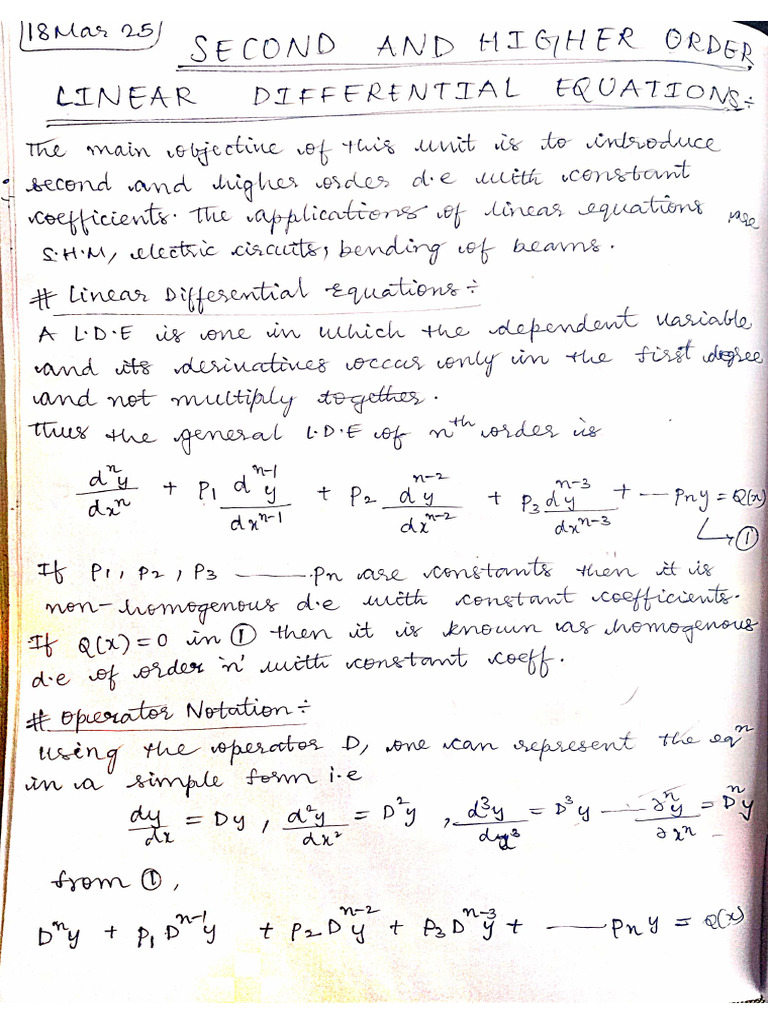 18 Mar 25
SECOND AND HIGHER ORDER
LINEAR DIFFERENTIAL EQUATIONS÷
The main objective of this unit is to introduce
second and higher order d.e with constant
coefficients. The applications of linear equations are
S.H.M, electric circuits, bending of beams.
# Linear Differential Equations÷
A L.D.E is one in which the dependent variable
and its derivatives occur only in the first degree
and not multiply together.
Thus the general L.D.E of nᵗʰ order is
dⁿy/dxⁿ + P₁ dⁿ⁻¹y/dxⁿ⁻¹ + P₂ dⁿ⁻²y/dxⁿ⁻² + P₃ dⁿ⁻³y/dxⁿ⁻³ + --- Pny = Q(x)
↳ ①
If P₁, P₂, P₃ ——— Pn are constants then it is
non-homogenous d.e with constant coefficients.
If Q(x) = 0 in ① then it is known as homogenous
d.e of order 'n' with constant coeff.
# Operator Notation÷
Using the operator D, one can represent the eqⁿ
in a simple form i.e
dy/dx = Dy, d²y/dx² = D²y, d³y/dx³ = D³y --- ∂ⁿy/∂xⁿ = Dⁿy
from ①,
Dⁿy + P₁Dⁿ⁻¹y + P₂Dⁿ⁻²y + P₃Dⁿ⁻³y + ——— Pn y = Q(x)